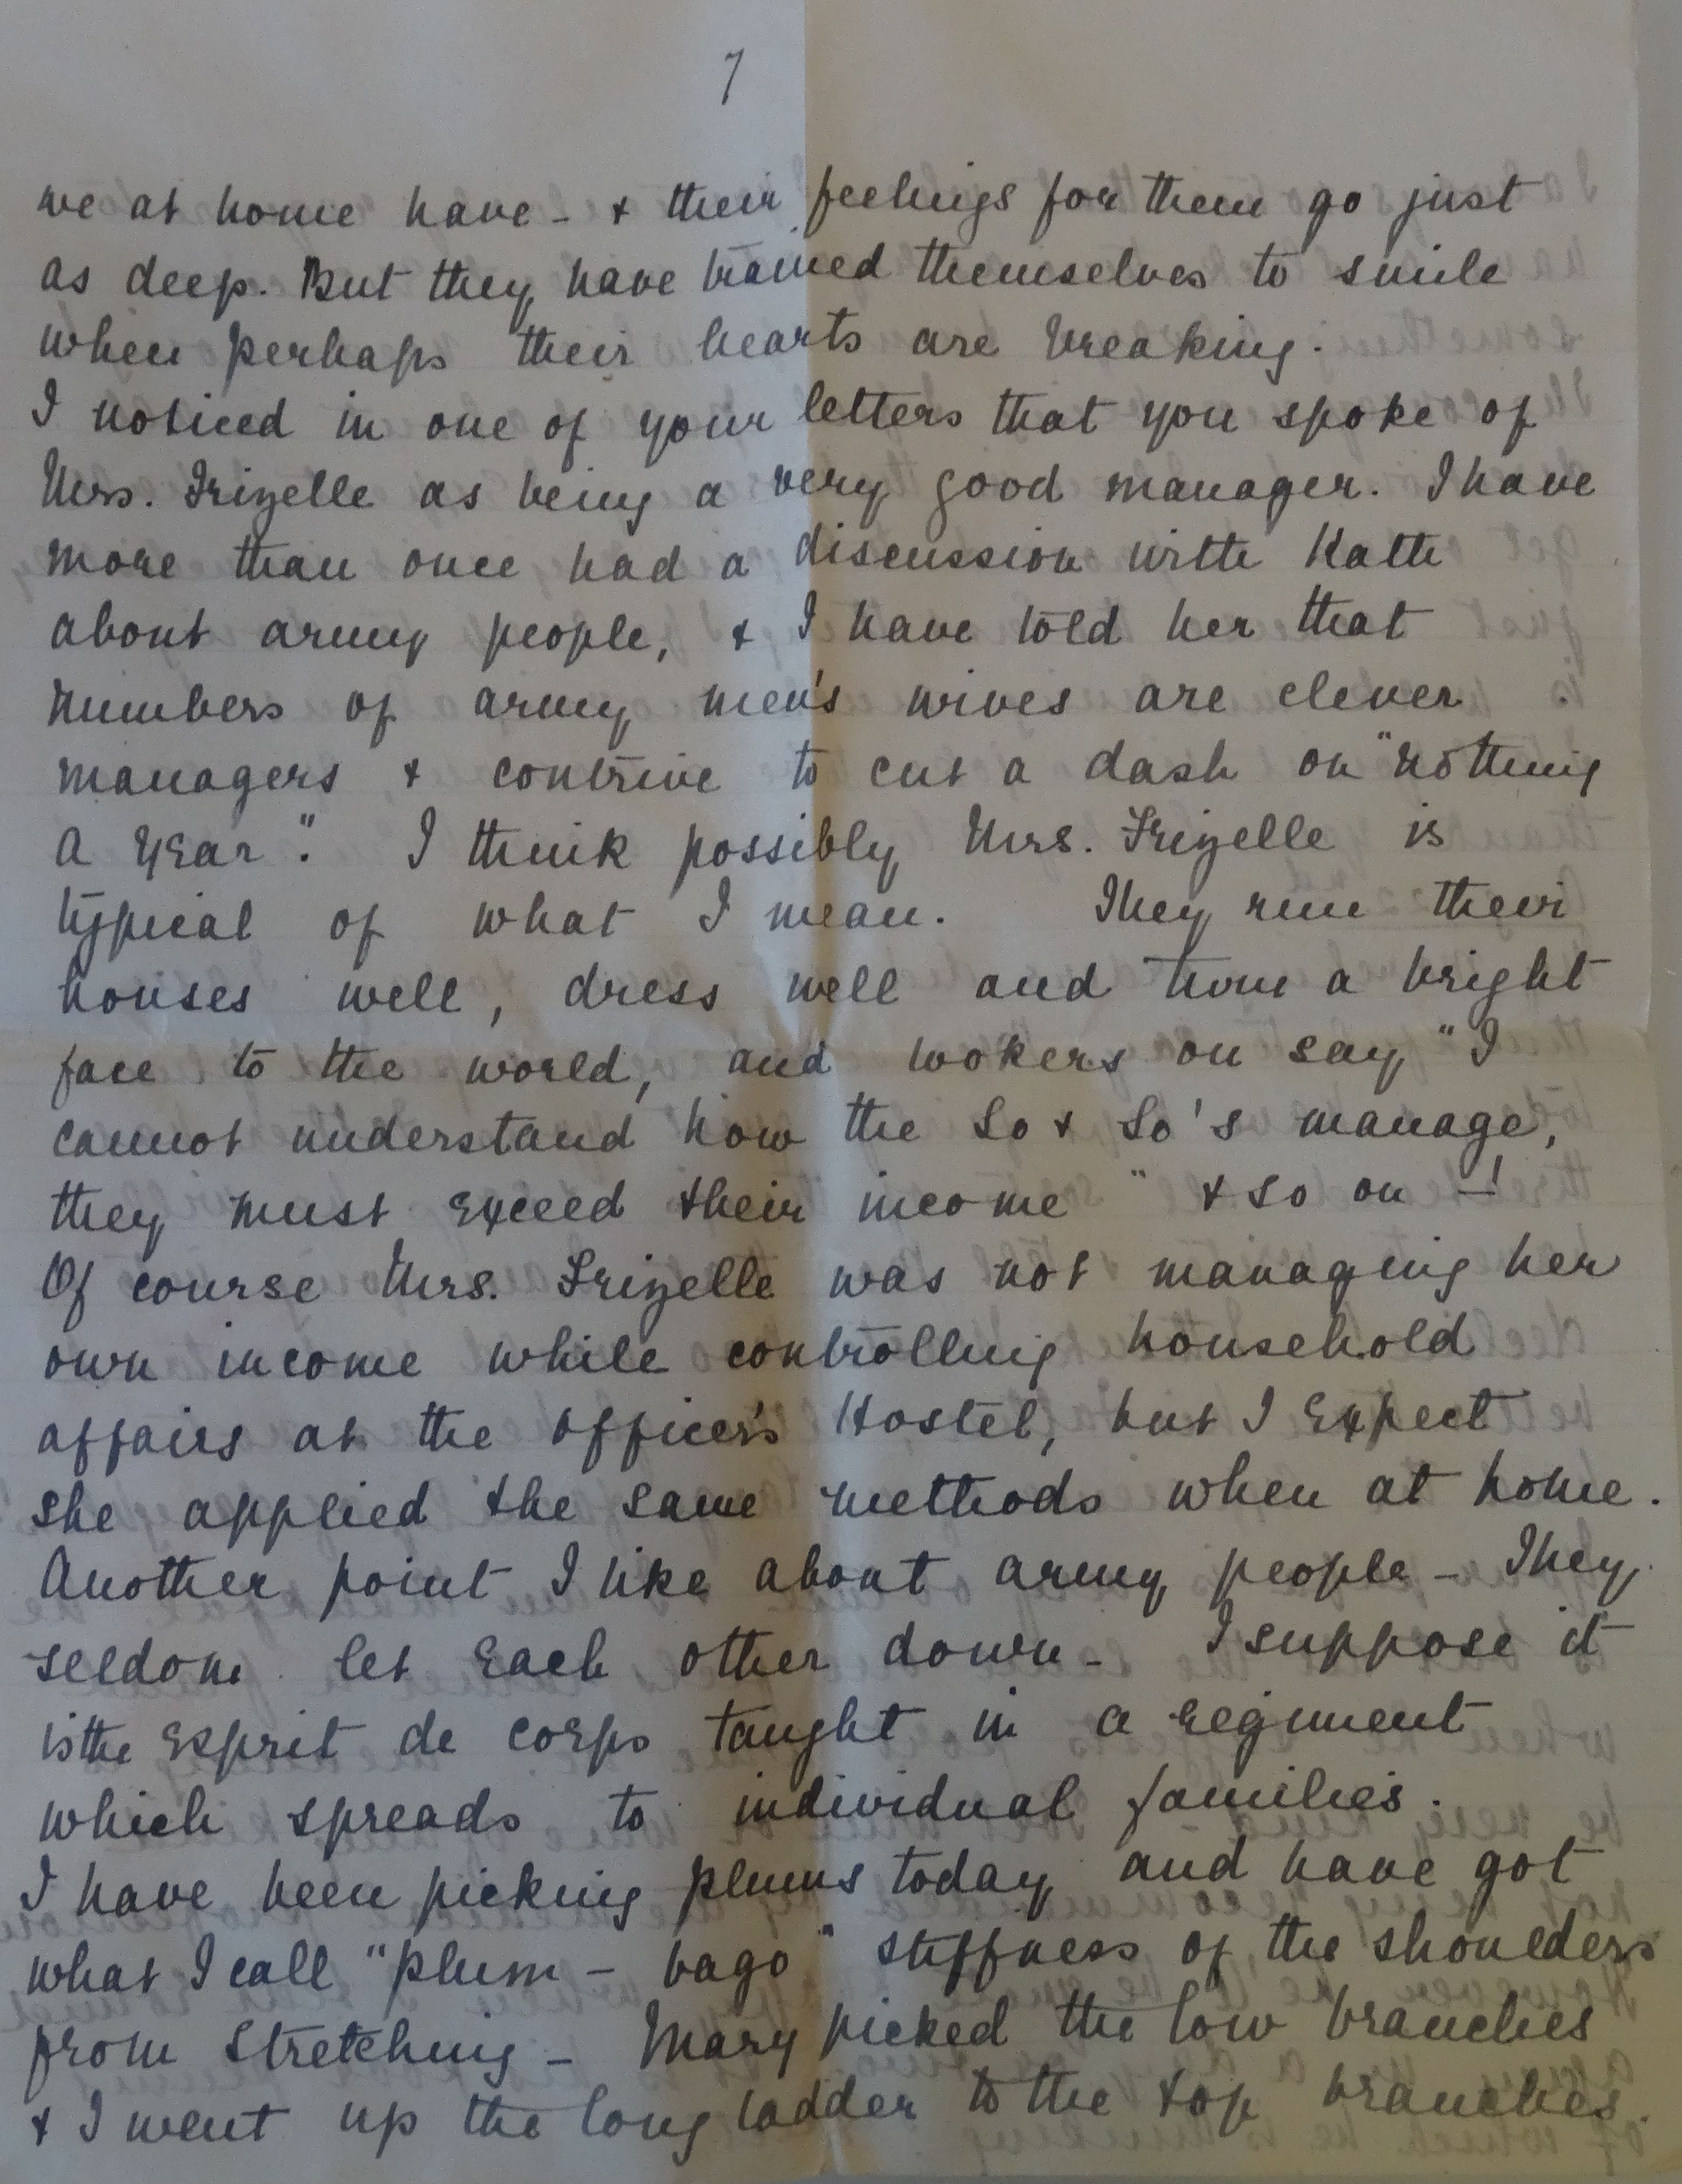 7
we at home have - & their feelings for them go just
as deep. But they have trained themselves to smile
when perhaps their hearts are breaking.
I noticed in one of your letters that you spoke of
Mrs. Frizelle as being a very good manager. I have
more than once had a discussion with Kath
about army people, & I have told her that
numbers of army men's wives are clever
managers & contrive to cut a dash on "nothing
a year". I think possibly Mrs. Frizelle is
typical of what I mean. They run their
houses well, dress well and turn a bright
face to the world, and lookers on say "I
cannot understand how the So & So's manage,
they must exceed their income" & so on -!
Of course Mrs. Frizelle was not managing her
own income while controlling household
affairs at the Officer's Hostel, but I expect
she applied the same methods when at home.
Another point I like about army people - They
seldom let each other down - I suppose it
is the esprit de corps taught in a regiment
which spreads to individual families.
I have been picking plums today and have got
what I call "plum - bago" stiffness of the shoulders
from stretching - Mary picked the low branches
& I went up the long ladder to the top branches.